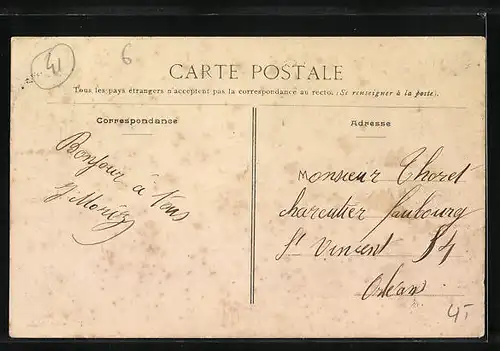 41
6
CARTE POSTALE
Tous les pays étrangers n'acceptent pas la correspondance au recto. (Se renseigner à la poste).
Correspondance
Bonjour à Vous
Adresse
Monsieur Thoret
charcutier faubourg
St Vincent 54
Orléans
4-